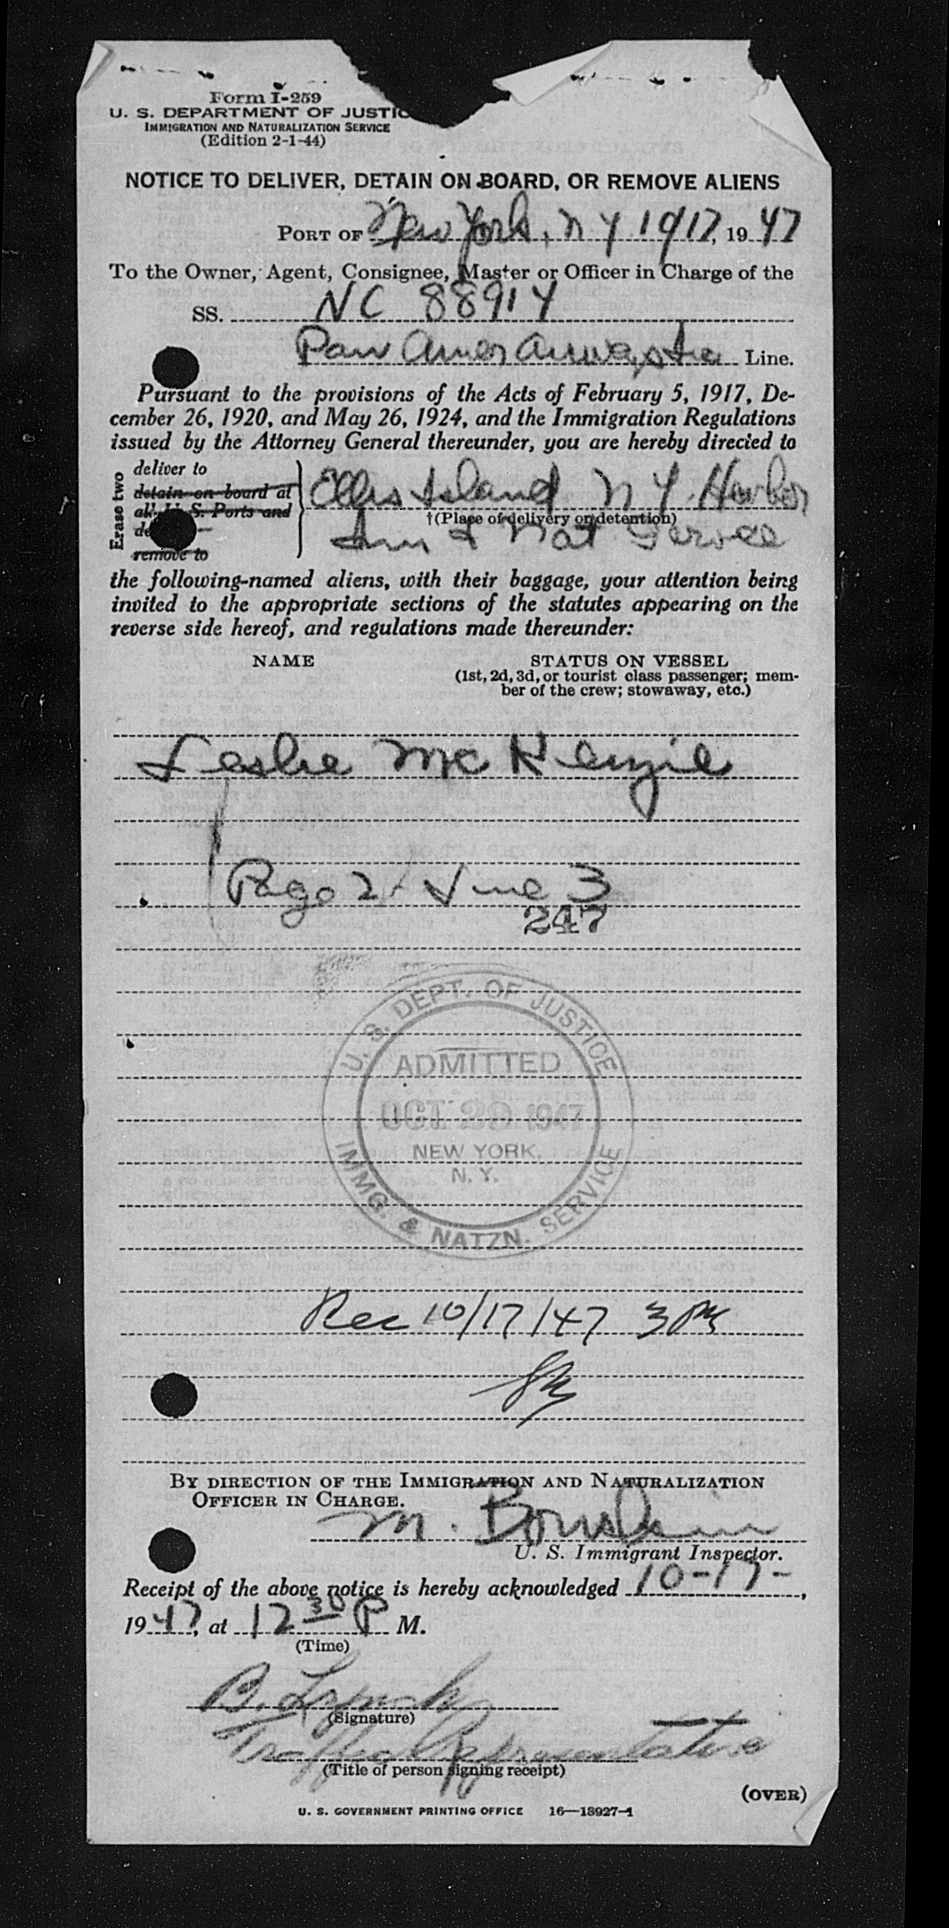 Form I-259
U. S. DEPARTMENT OF JUSTIC
IMMIGRATION AND NATURALIZATION SERVICE
(Edition 2-1-44)
NOTICE TO DELIVER, DETAIN ON BOARD, OR REMOVE ALIENS
PORT OF New York, N Y 10/17, 1947
To the Owner, Agent, Consignee, Master or Officer in Charge of the
SS. NC 88914
Pan Amer Airways Inc Line.
Pursuant to the provisions of the Acts of February 5, 1917, De-
cember 26, 1920, and May 26, 1924, and the Immigration Regulations
issued by the Attorney General thereunder, you are hereby directed to
Erase two
deliver to
detain on board at
all U. S. Ports and
remove to
Ellis Island N Y. Harbor
†(Place of delivery or detention)
Imm & Nat Service
the following-named aliens, with their baggage, your attention being
invited to the appropriate sections of the statutes appearing on the
reverse side hereof, and regulations made thereunder:
NAME STATUS ON VESSEL
(1st, 2d, 3d, or tourist class passenger; mem-
ber of the crew; stowaway, etc.)
Leslie McKenzie
Page 2 / Line 3
247
U. S. DEPT. OF JUSTICE
ADMITTED
OCT 20 1947
NEW YORK,
N. Y.
IMMG. & NATZN. SERVICE
Rec 10/17/47 3 PM
BY DIRECTION OF THE IMMIGRATION AND NATURALIZATION
OFFICER IN CHARGE.
M.
U. S. Immigrant Inspector.
Receipt of the above notice is hereby acknowledged 10-17-,
1947, at 12 30 P M.
(Time)
B. Lynch
(Signature)
Traffic Representative
(Title of person signing receipt)
(OVER)
U. S. GOVERNMENT PRINTING OFFICE 16—18927-1